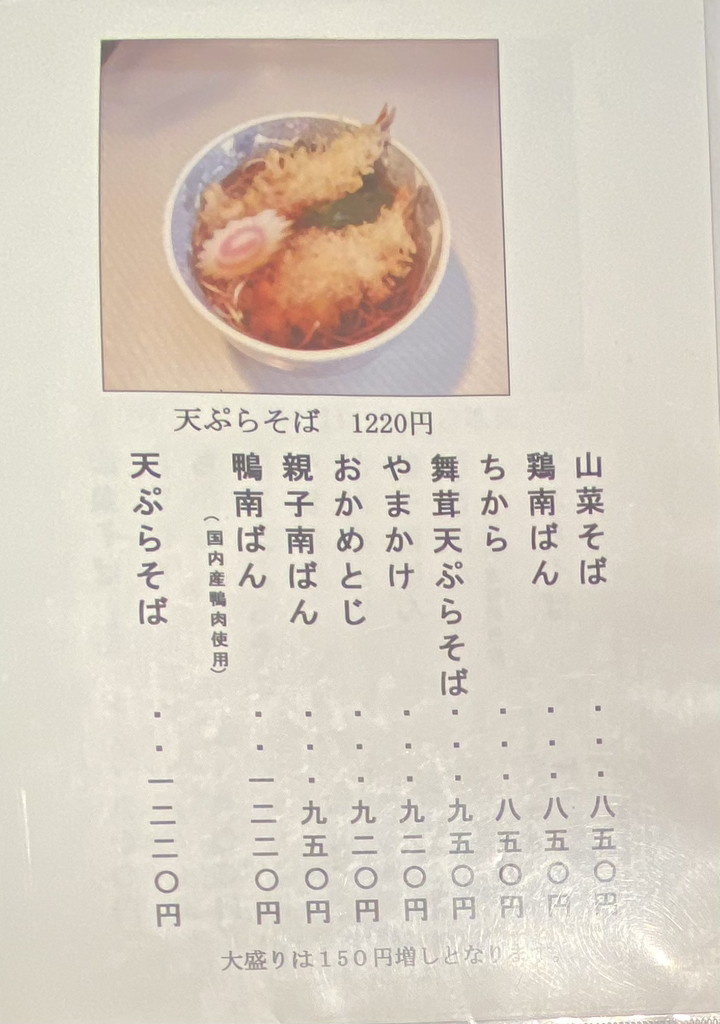 天ぷらそば　1220円
山菜そば・・・八五〇円
鶏南ばん・・・八五〇円
ちから・・・八五〇円
舞茸天ぷらそば・・・九五〇円
やまかけ・・・九二〇円
おかめとじ・・・九二〇円
親子南ばん・・・九五〇円
鴨南ばん・・一二二〇円
（国内産鴨肉使用）
天ぷらそば・・一二二〇円
大盛りは150円増しとなります。